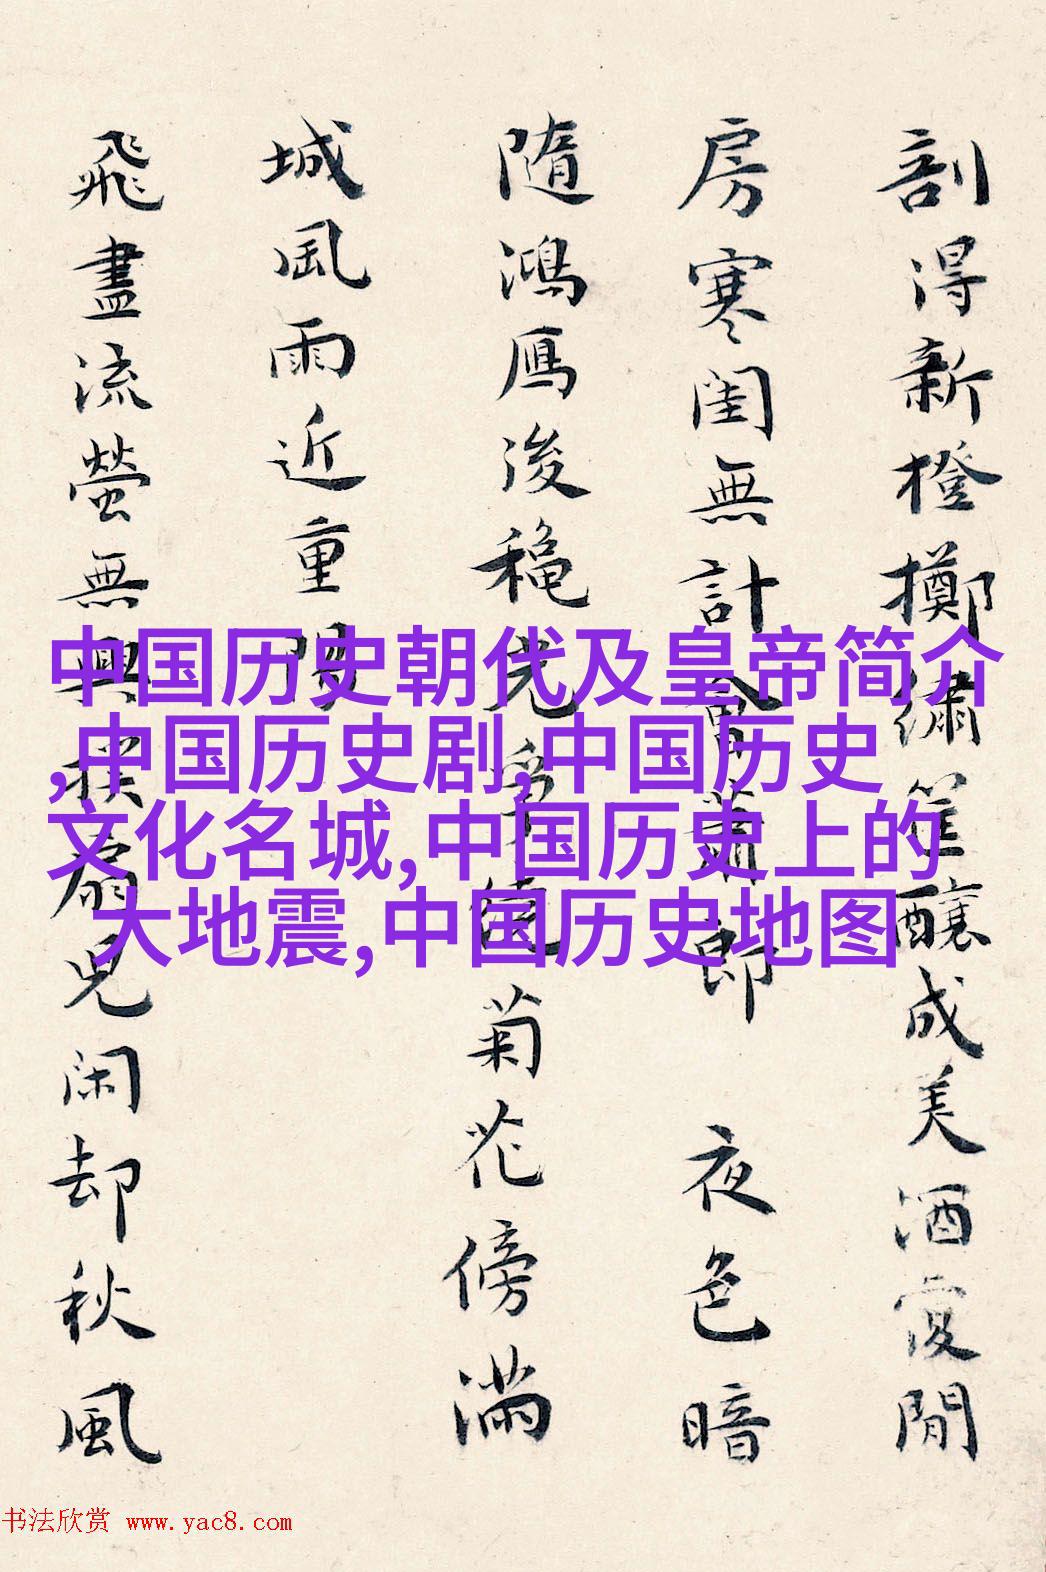 剖得新橙擲繡筐釀成美酒閒
房寒閨無計會蕭郎 夜色暗
隨鴻鴈後穐光爭繞菊花傍滿
城風雨近重陽
飛盡流螢無興撲扇兒閑却秋風
中国历史朝代及皇帝简介
,中国历史剧,中国历史
文化名城,中国历史上的
大地震,中国历史地图
书法欣赏 www.yac8.com